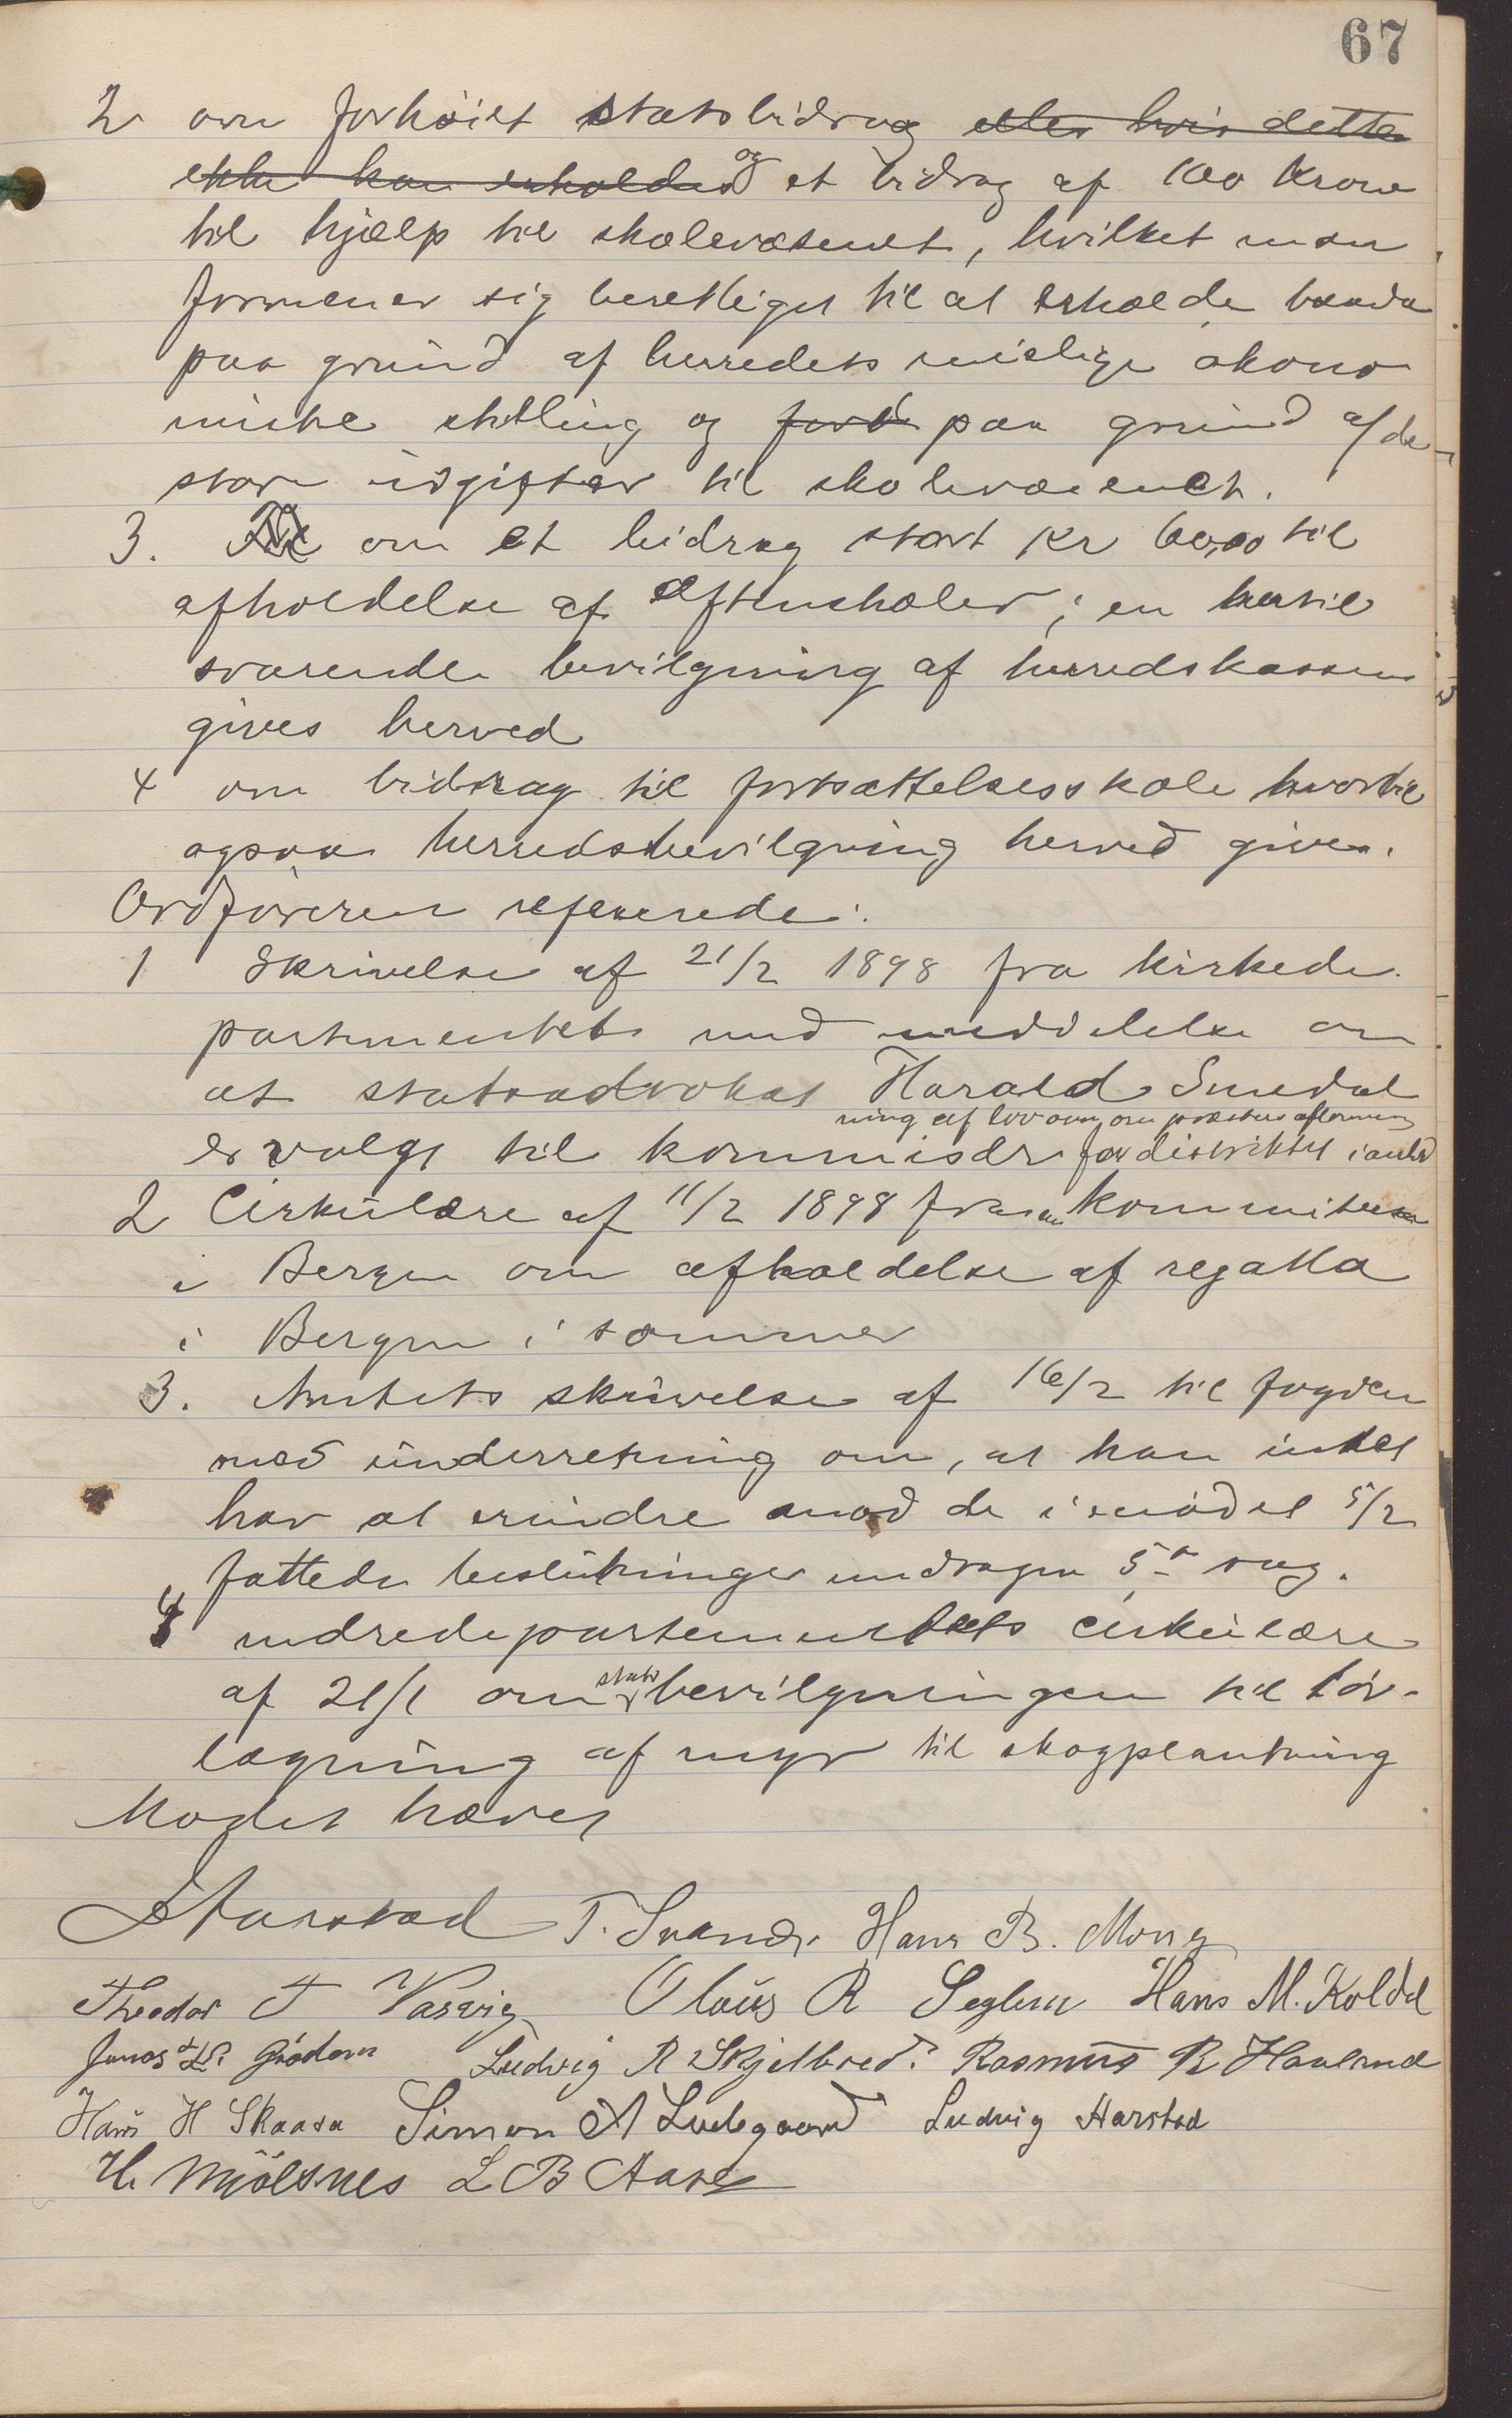 67
2 om forhöiet statsbidrag eller hvis dette
ikke kan erholdes og et bidrag af 100 krone
til hjælp til skolevæsenet, hvilket man
formener sig berettiget til at erholde baade
paa grund af herredets mislige økono
miske stilling og paa grund af de
store udgifter til skolevæsenet.
3. om et bidrag stort kr 60,00 til
afholdelse af Aftenskoler; en hertil
svarende bevilgning af herredskassen
gives herved
4 om bidrag til fortsættelsesskole hvortil
ogsaa herredsbevilgning herved gives.
Ordføreren refererede:
1 Skrivelse af 21/2 1898 fra kirkede
partementet med meddelelse om
at statsadvokat Harald Smedal
ning af lovom, om præsters aflønning
er valgt til kommisær for distriktet i anled
2 Cirkulære af 11/2 1898 fra en kommitee
i Bergen om afholdelse af regatta
i Bergen i sommer
3. Amtets skrivelse af 16/2 til fogden
med underretning om, at han intet
har at erindre mod de i mødet 5/2
fattede beslutninger undtagen 5te sag.
4 indredepartementets cirkulære
af 21/1 om stats bevilgningen til tør-
lægning af myr til skogplantning
Mødet hævet
Harstad T. Svandr. Hans B. Mong
Theodor T Vasvig Olaus R Seglem Hans M. Koldal
Jonas Grödem Ludvig R Skjelbred. Rasmus R Havland
Hans H Skaara Simon A Ludegaard Ludvig Harstad
H. Mjölsnes L B Aase